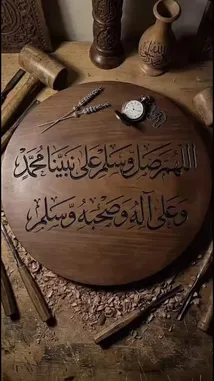 اللهم صل وسلم على نبينا محمد
وعلى آله وصحبه وسلم